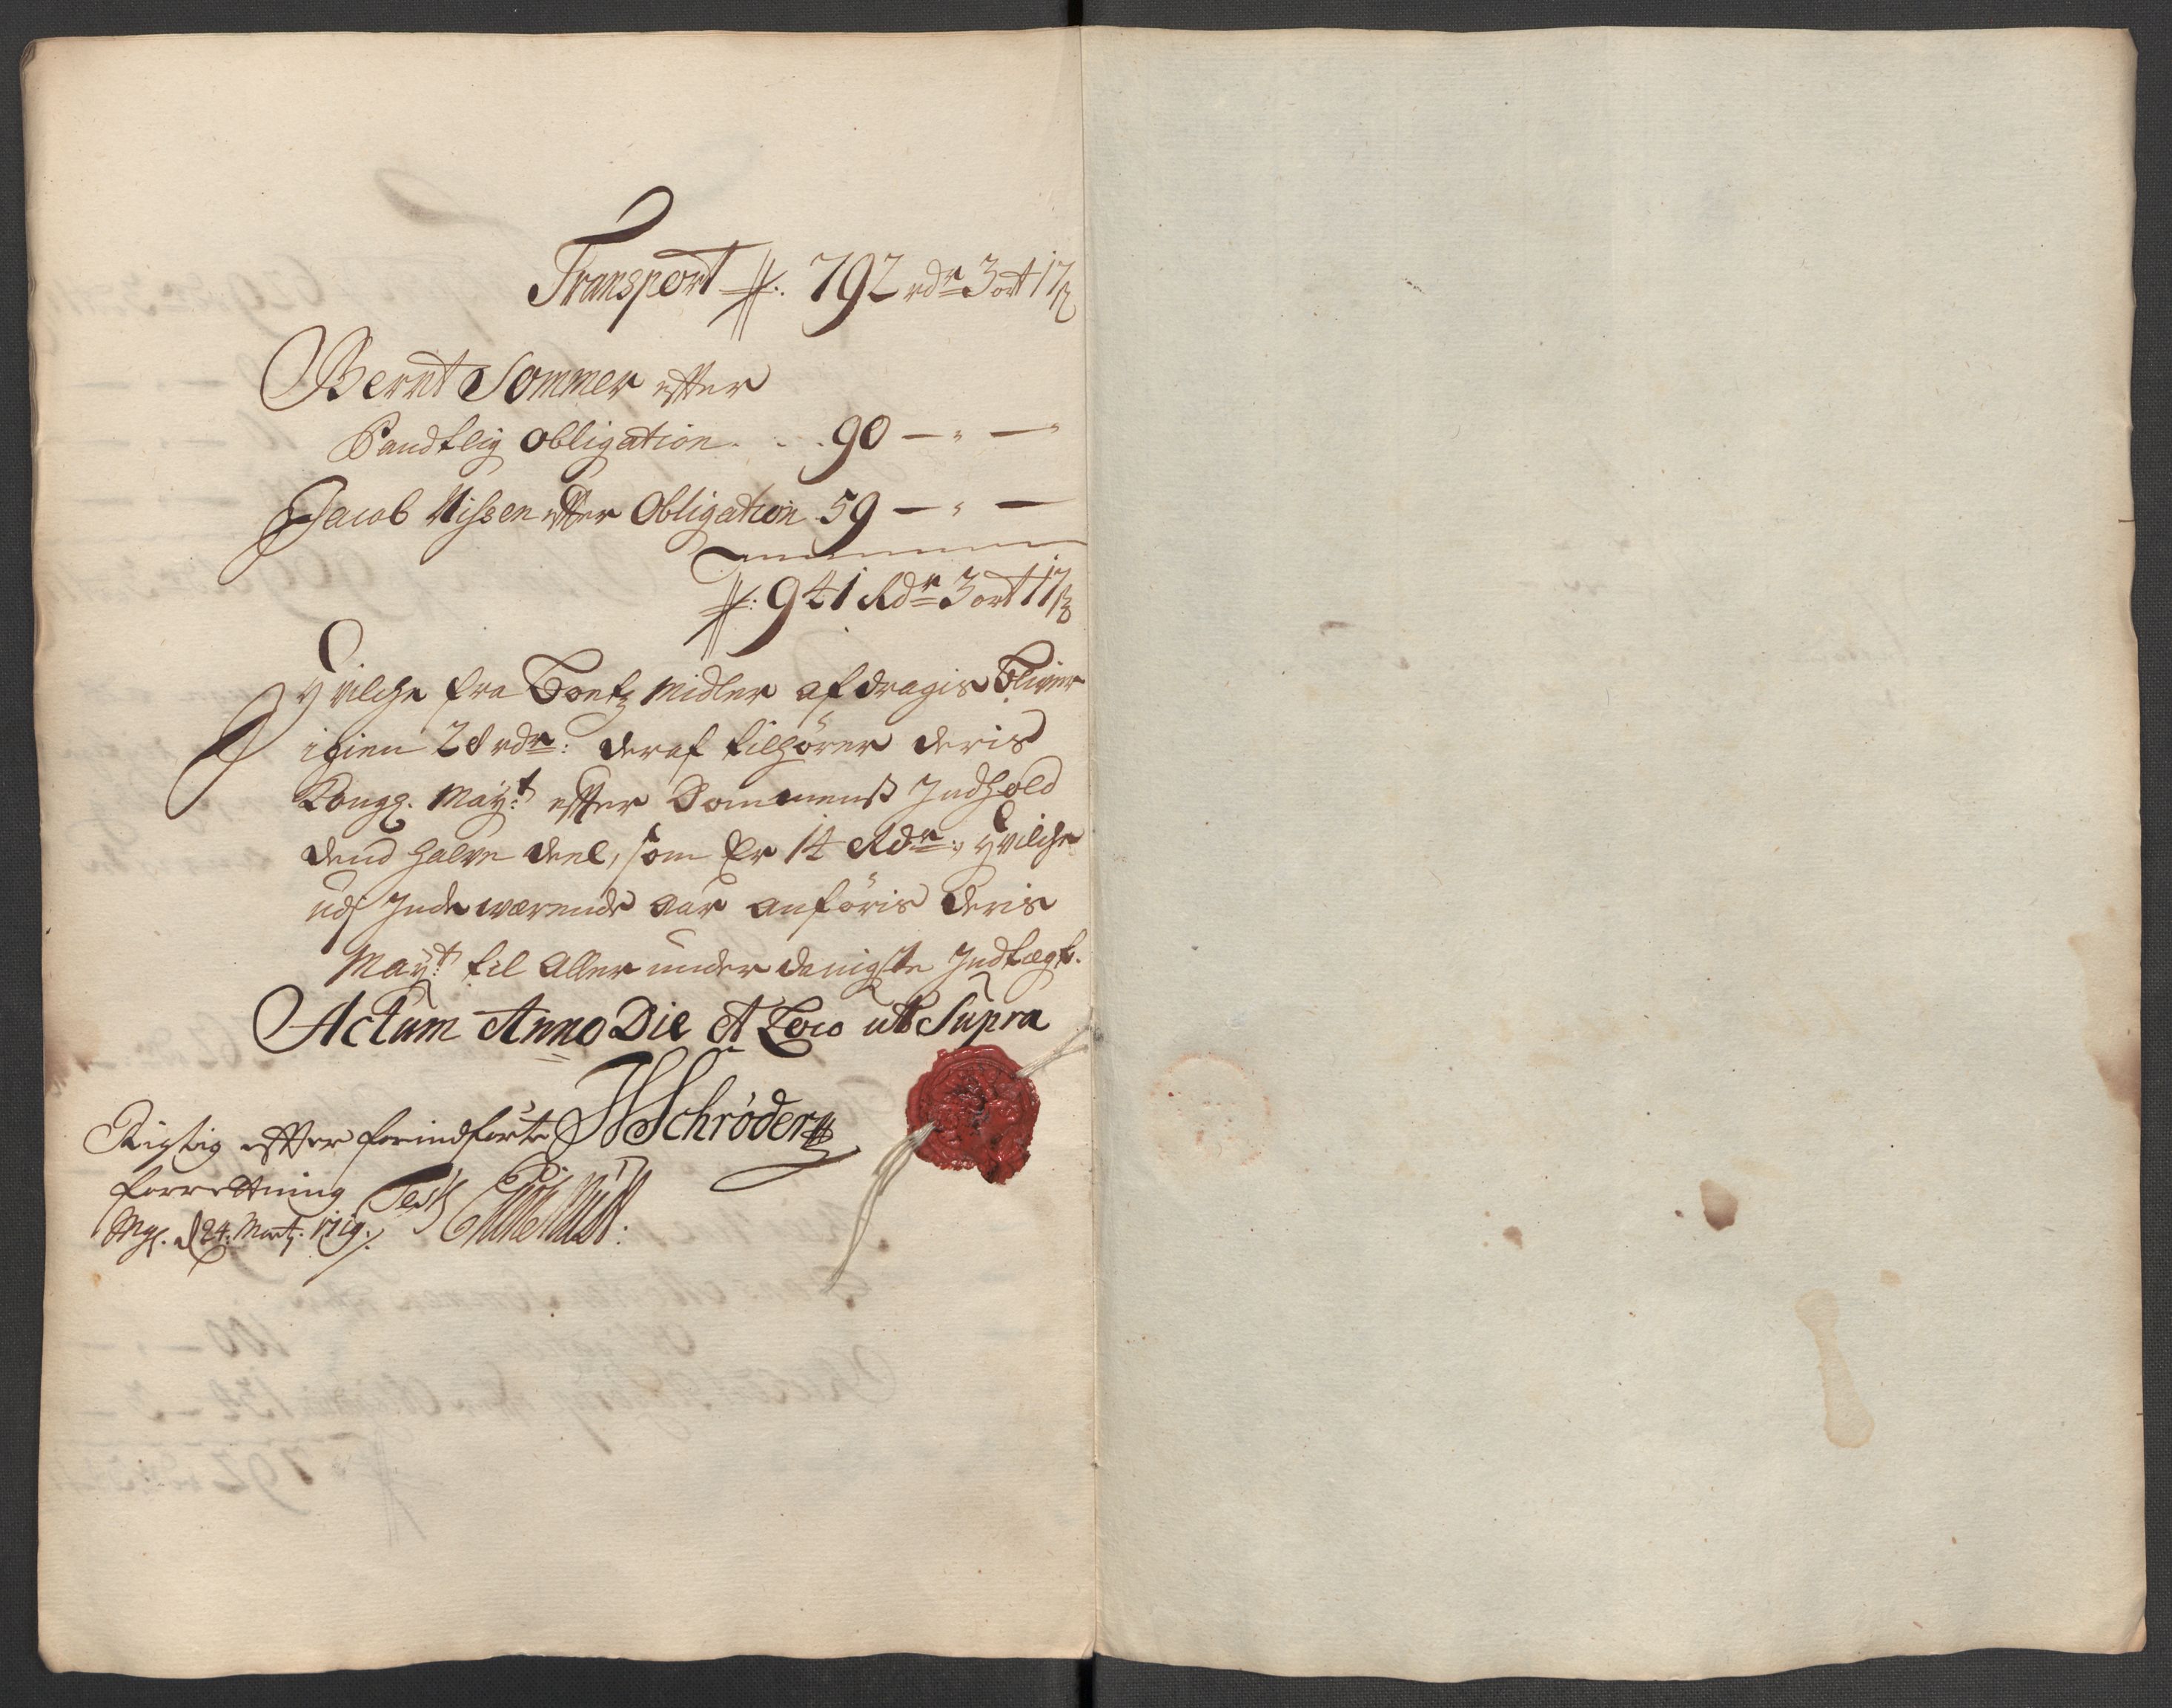 Transport 792 rdr 3 ort 17 ß
Bernt Sommer efter
Pandtlig obligation . . . 90 — " —
Jacob Nissen efter Obligation 59 — " —
941 Rdr 3 ort 17 ß
Hvilche fra Boets midler afdragis bliver
igien 28 rdr: deraf tilhörer deris
Kongl. Mayt efter Dommens Indhold
dend halve deel, som Er 14 Rdr., hvilche
udj Indeværende aar anföris deris
Mayt til Allerunderdanigste Indtægt.
Actum Anno Die et Loco ut Supra
HSchröder
Rigtig efter forindförte
forretning Test
d 24. Mart. 1719.